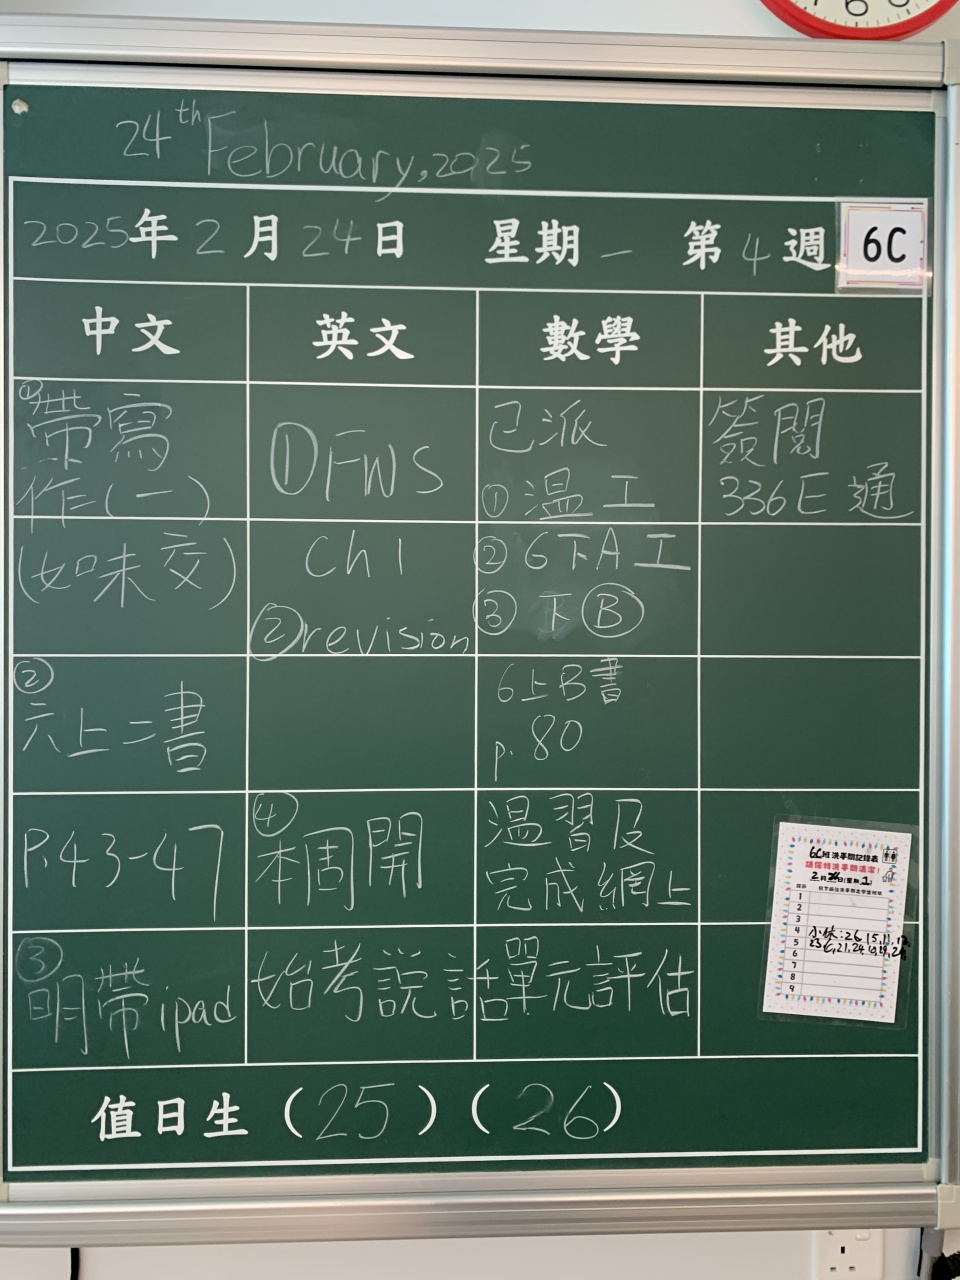 24th February, 2025
2025年2月24日 星期一 第4週
6C
中文
①帶寫
作(一)
(如未交)
②
六上二書
P.43-47
③
明帶ipad
英文
①FWS
Ch1
②revision
數學
已派
①溫工
②6下A工
③下Ⓑ
6上B書
p.80
溫習及
完成網上
④
本周開
始考說話單元評估
其他
簽閱
336E通
6C班洗手間記錄表
請保持洗手間清潔!
2月24日(星期1)
1
2
3
4
5
6
7
8
9
小休:26,15,11,12
值日生(25)(26)